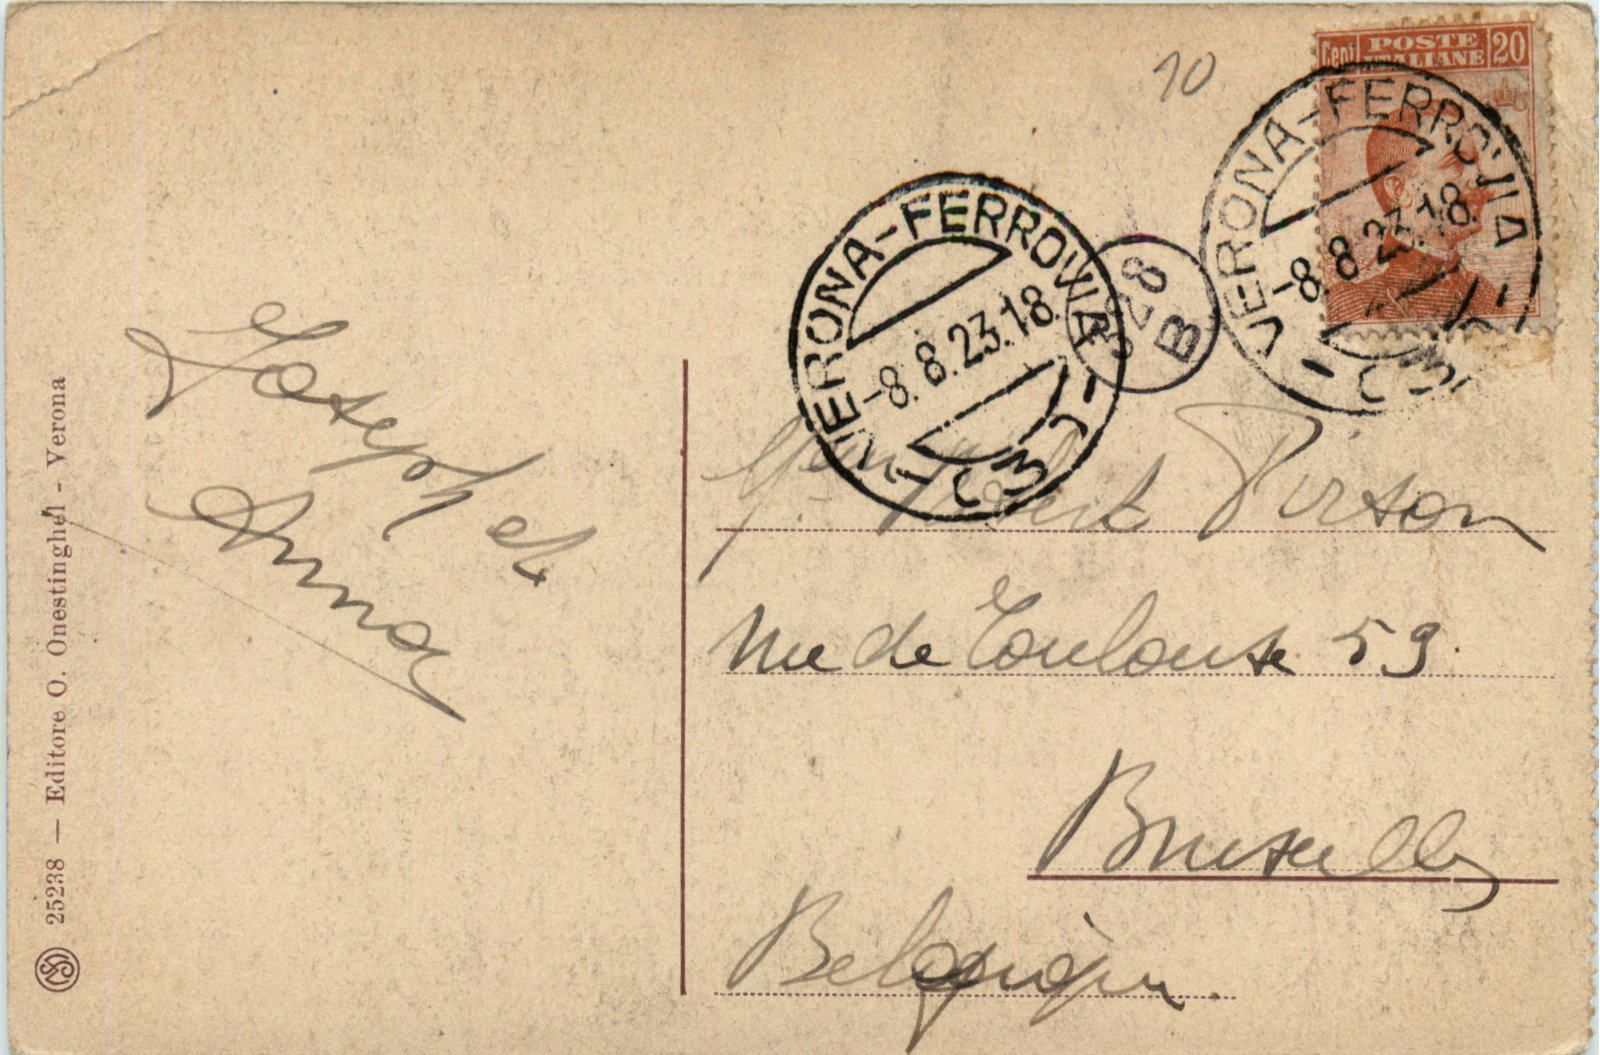 10
Cent POSTE ITALIANE 20
VERONA-FERROVIA
-8.8.23.18
VERONA-FERROVIA
-8.8.23.18.
328
B
Joseph et
Anna
Pirson
rue de Toulouse 59.
Bruxelles
Belgique.
25238 — Editore O. Onestinghel - Verona